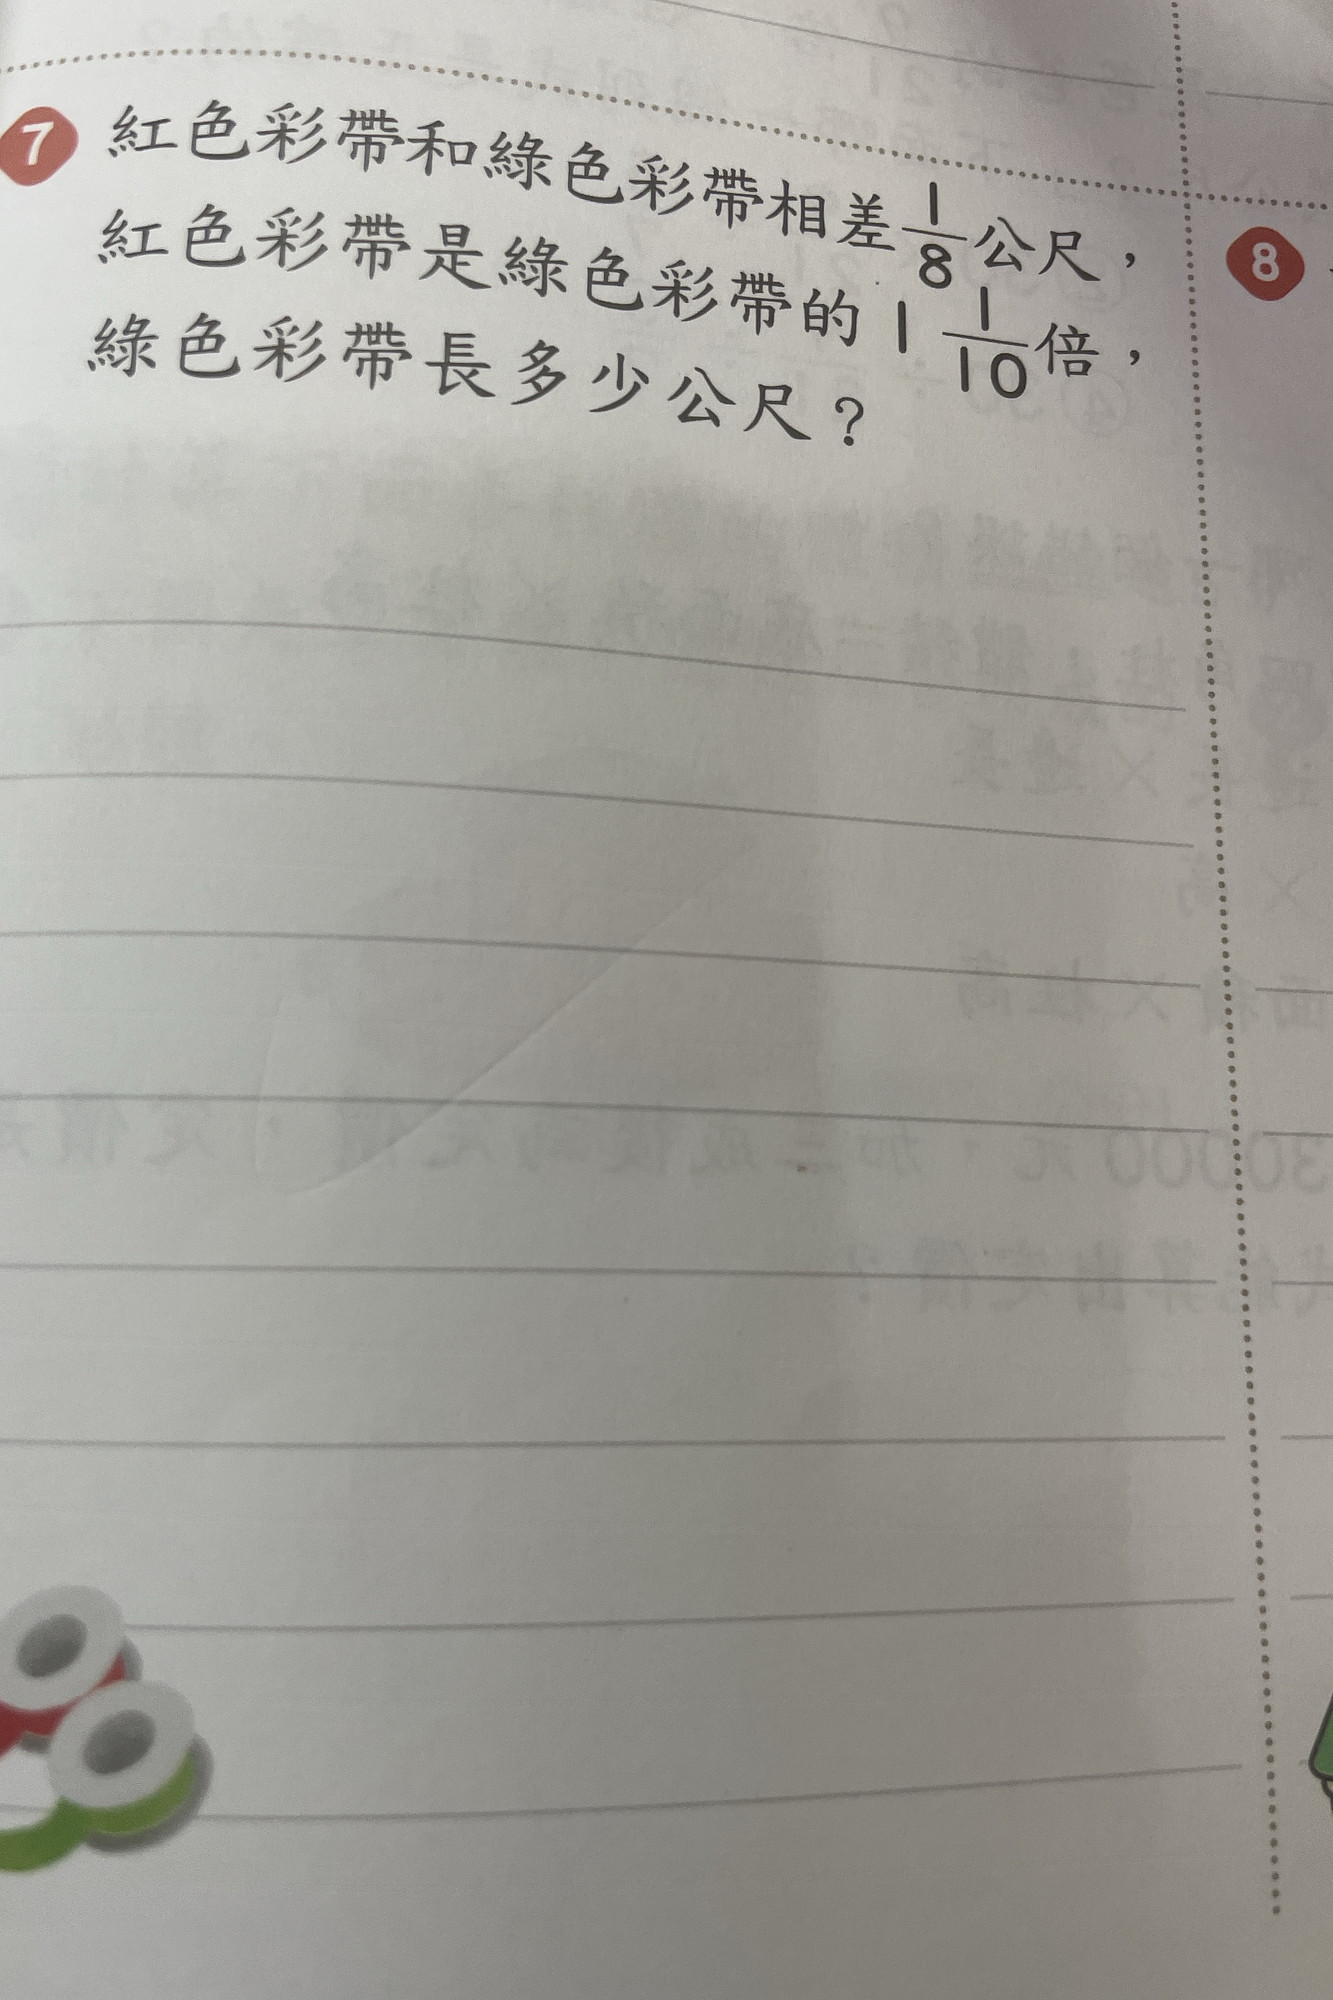 7 紅色彩帶和綠色彩帶相差1/8公尺，
紅色彩帶是綠色彩帶的1 1/10倍，
綠色彩帶長多少公尺？
8